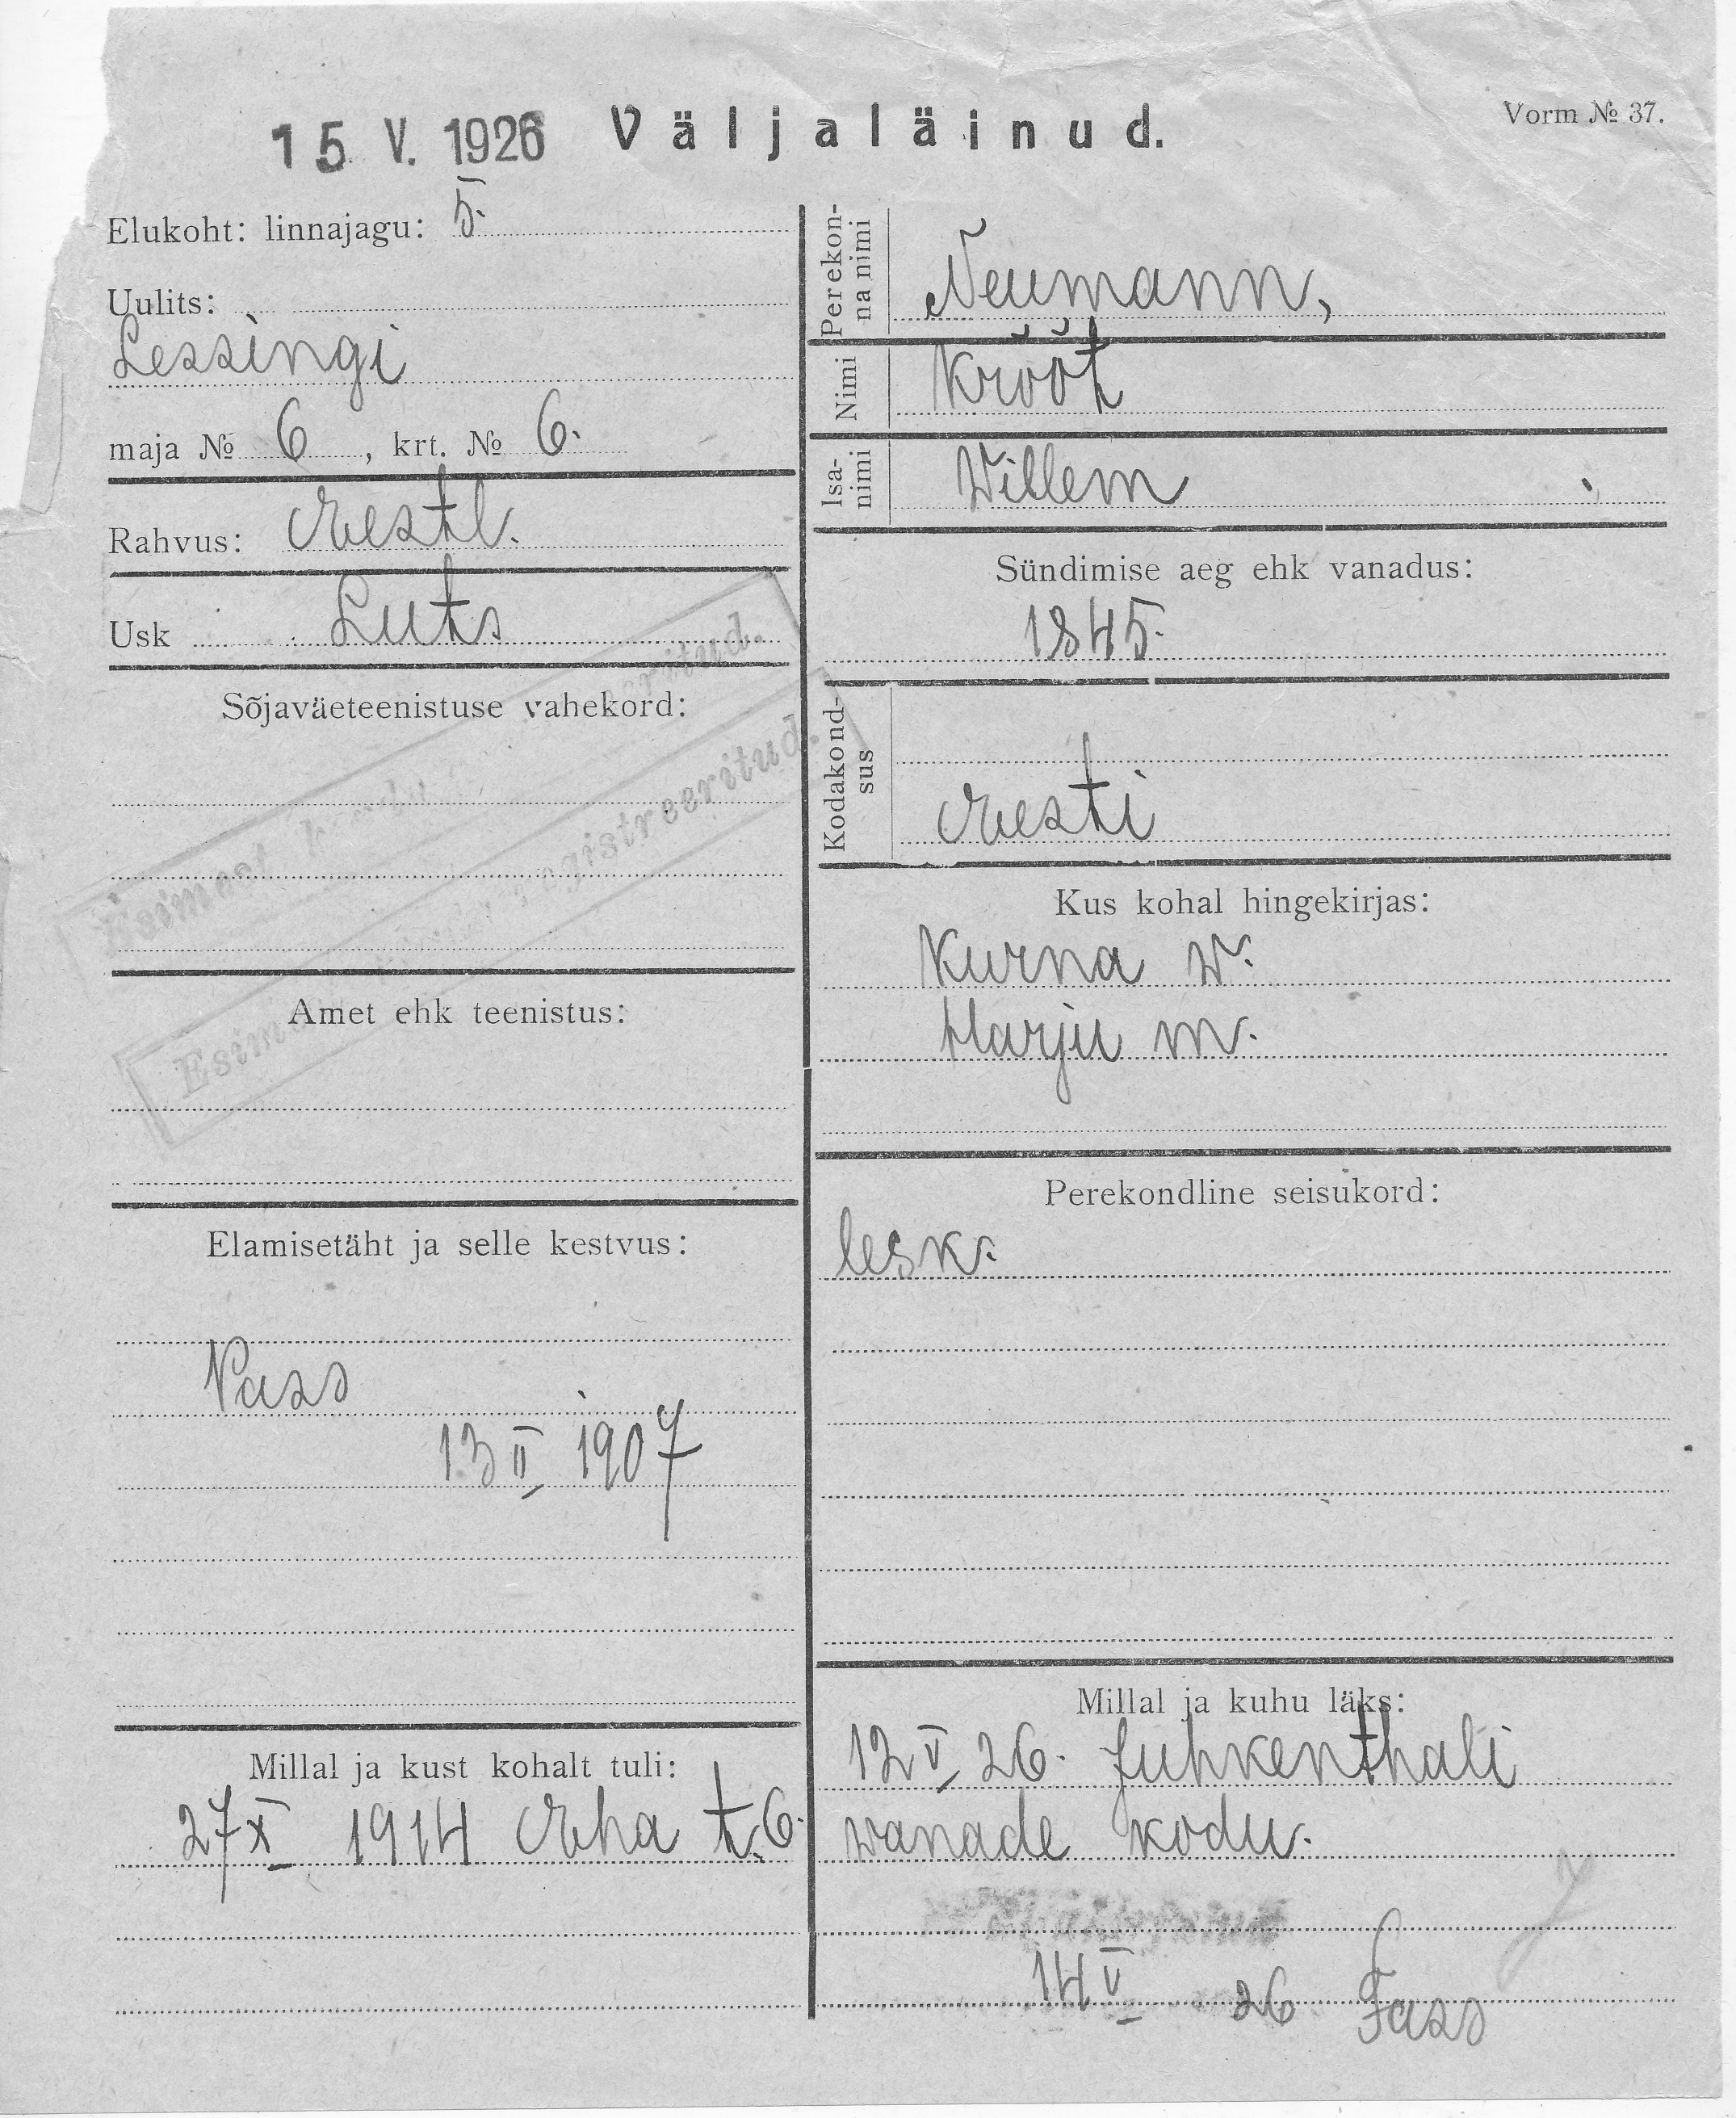 15 V. 1926 Väljaläinud.
Vorm № 37.
Elukoht: linnajagu: 5.
Uulits:
Lessingi
maja № 6, krt. № 6.
Rahvus: Eestl.
Usk Luts
Sõjaväeteenistuse vahekord:
Esimest korda registreeritud.
Amet ehk teenistus:
Elamisetäht ja selle kestvus:
Pass
13 II 1907
Millal ja kust kohalt tuli:
27 X 1914 Eha t. 6.
Perekon-
na nimi
Neumann,
Nimi Krõõt
Isa-
nimi
Willem
Sündimise aeg ehk vanadus:
1845.
Kodakond-
sus
Eesti
Kus kohal hingekirjas:
Kurna w.
Harju m.
Perekondline seisukord:
lesk.
Millal ja kuhu läks:
12 V 26. Juhkenthali
wanade kodu.
14 V 26 Fass